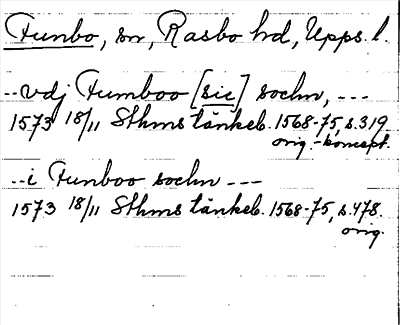 Funbo, sn, Rasbo hd, Upps. l.
--vdj Fumboo [sic] sochn, ---
1573 18/11 Sthms tänkeb. 1568-75, s. 319
orig.-koncept.
--i Funboo sochn ---
1573 18/11 Sthms tänkeb. 1568-75, s. 478.
orig.